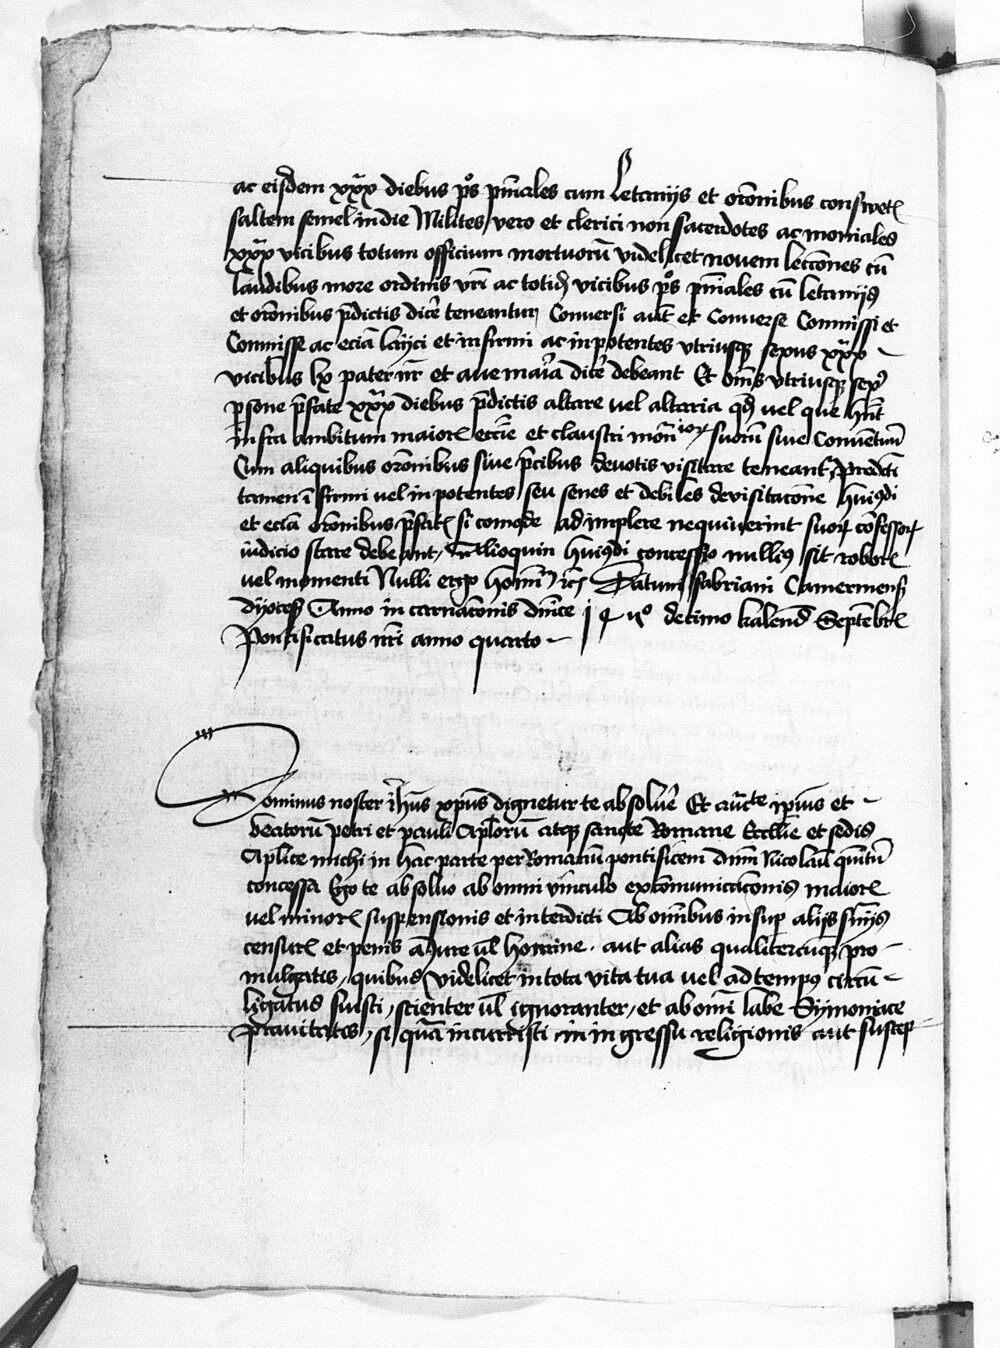 ac eisdem xxxᵃ diebus pˢos pn̄iales cum Letanijs et orōnibus conswet
saltem semel in die Milites vero et clerici non sacerdotes ac moniales
xxxᵃ vicibus totum officium mortuorū videlicet novem leccōnes cū
laudibus more ordinis vrī ac totidē vicibus pˢos pn̄iales cū letanijs
et orōnibus p̄dictis dicē teneantur Conversi aut̄ et Converse Commissi et
Commisse ac eciā layci et infirmi ac inpotentes vtriusqꝫ sexus xxxᵃ
vicibus lx pater nr̄ et aue maīa dicē debeant Et om̄s vtriusqꝫ sexꝰ
ꝑsone p̄fate xxxᵃ diebus p̄dictis altare vel altaria qd̄ vel que hn̄t
infra ambitum maiorꝭ eccīe et claustri mōn̄ioꝝ suorū siue Conventuū
Cum aliquibus orōnibus siue p̄cibus devotis visitare teneant᷑ p̄redcti
tamen īfirmi vel inpotentes seu senes et debiles de visitacōne hmōi
et eciā orōnibus p̄fatꝭ si comode adimplere nequiuerint suoꝝ cōfessoꝝ
iudicio stare debeant, Alioquin hmōi concessio nulliꝰ sit roborꝭ
vel momenti Nulli ergo homin̄ ꝛcꝭ Datum fabriani Camerinenꝭ
dyocesꝭ Anno incarnacōnis dn̄ice 14 50 decimo kalend̄ Septēbrꝭ
Pontificatus nr̄i anno quarto
Dominus noster ih̄us xp̄us dignetur te absoluē Et auc̄te ip̄ius et
beatorū petri et pauli Aplo᷑rū atqꝫ sancte Romane Ecclīe et sedis
Aplīce michi in hac parte per Romanū pontificem dnm̄ Nicolaū quintū
concessa Ego te absoluo ab omni vinculo excōmunicacōnis maiorꝭ
vel minorꝭ suspensionis et interdicti Ab om̄ibus insuꝑ alijs sn̄ijs
censurꝭ et penis a Jure vl̄ homine. aut alias qualitercūqꝫ pro
mulgatis, quibus videlicet in tota vita tua vel ad tempus circū
ligatus fuisti, scienter vl̄ ignoranter, et ab om̄i labe Symoniace
prauitatis, si quā incurristi in ingressu religionis aut suscep